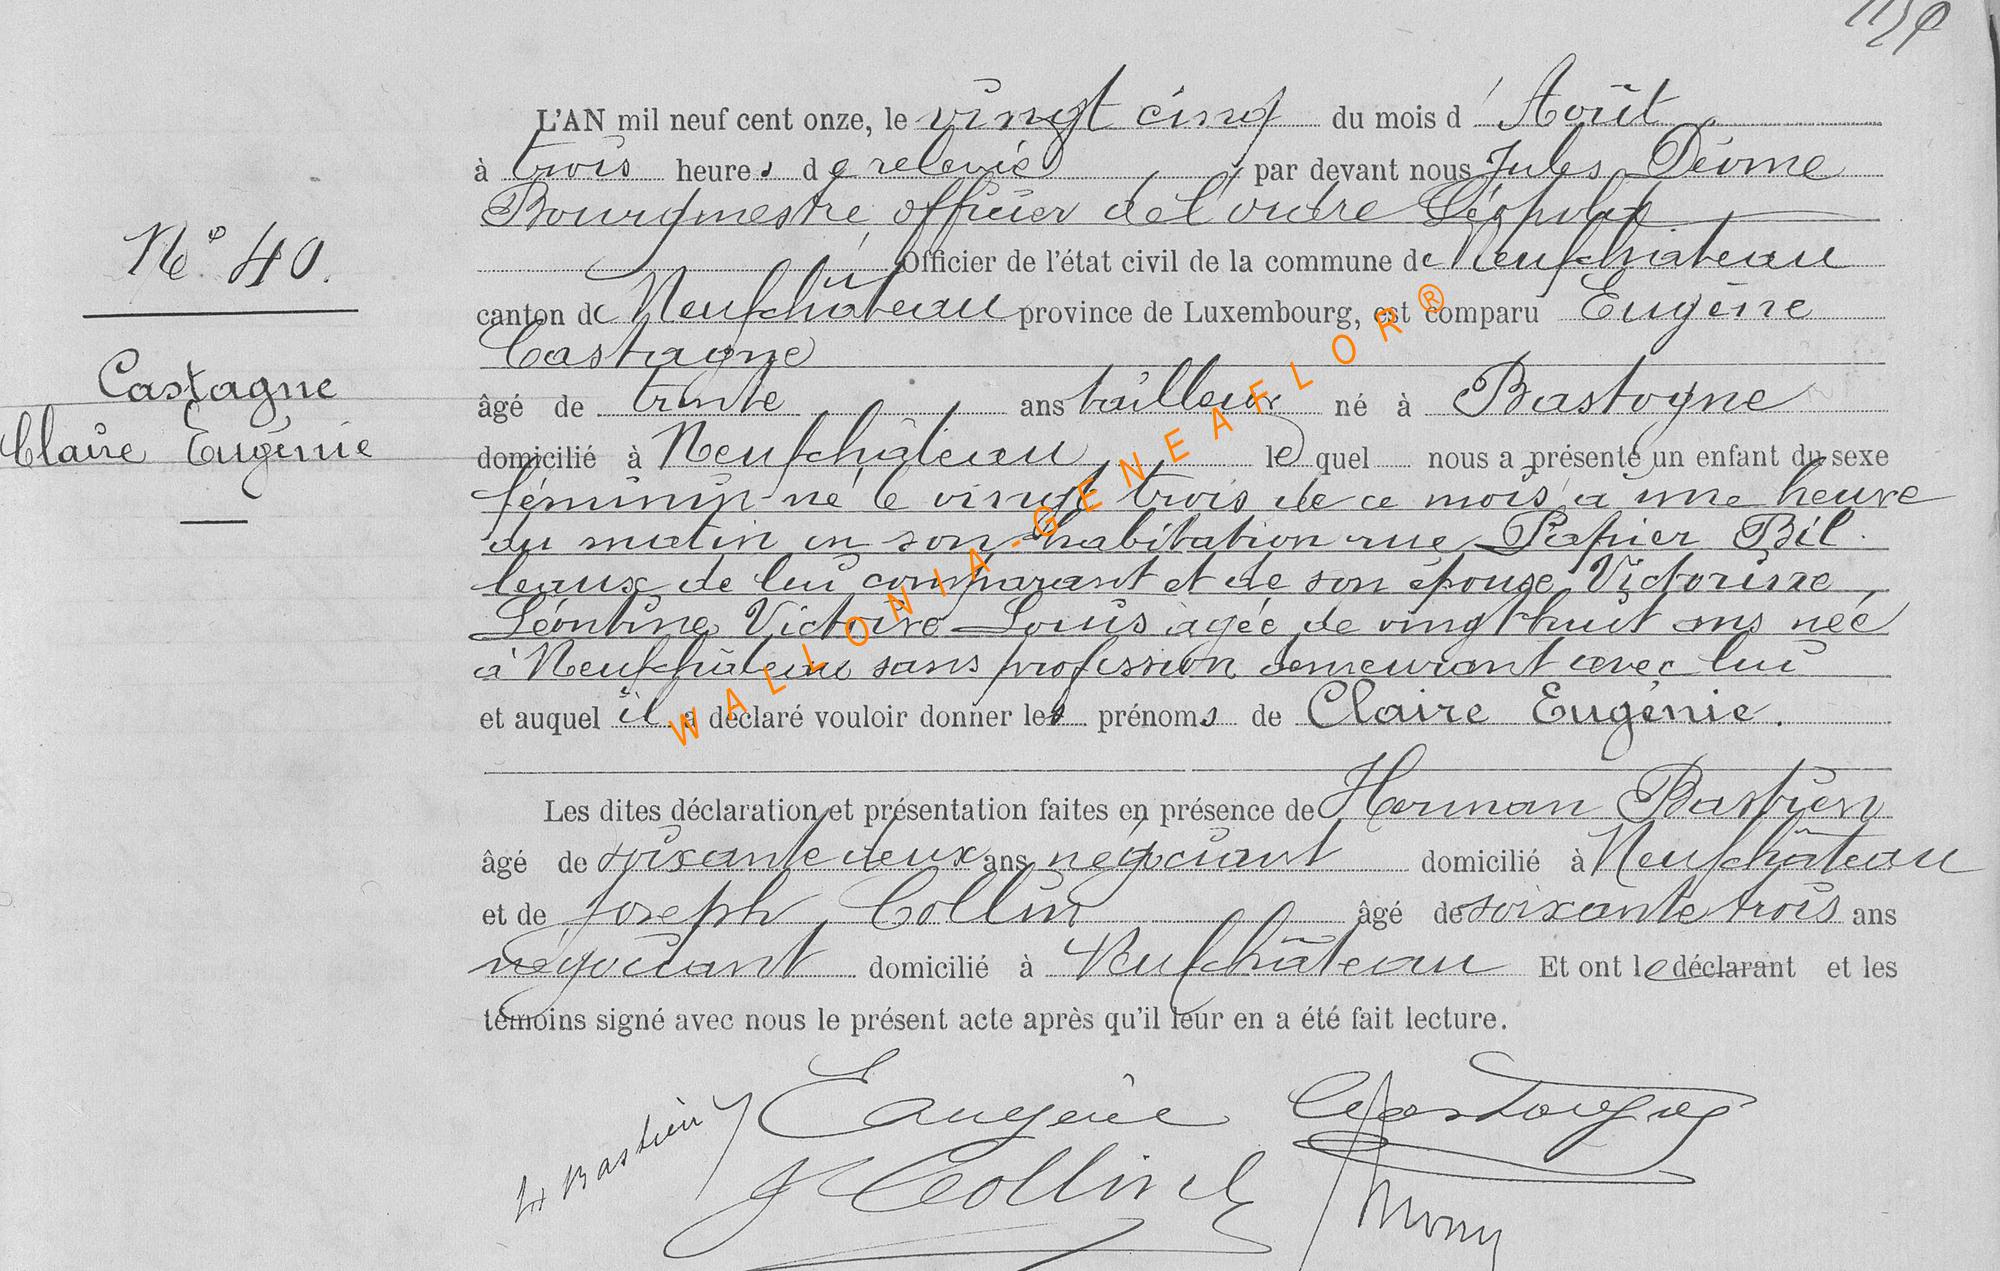 N° 40.
Castagne
Claire Eugénie
L'AN mil neuf cent onze, le vingt cinq du mois d'Août
à trois heures de relevée par devant nous Jules
Bourgmestre, officier de l'ordre Léopold
Officier de l'état civil de la commune de Neufchâteau
canton de Neufchâteau province de Luxembourg, est comparu Eugène
Castagne
âgé de trente ans tailleur né à Bastogne
domicilié à Neufchâteau lequel nous a présenté un enfant du sexe
féminin né le vingt trois de ce mois à une heure
du matin en son habitation rue
de lui comparant et de son épouse Victorine
Léontine Victoire Louis âgée de vingt huit ans née
à Neufchâteau sans profession demeurant avec lui
et auquel il a déclaré vouloir donner les prénoms de Claire Eugénie.
Les dites déclaration et présentation faites en présence de Herman Bastien
âgé de soixante deux ans négociant domicilié à Neufchâteau
et de Joseph Collin âgé de soixante trois ans
négociant domicilié à Neufchâteau Et ont le déclarant et les
témoins signé avec nous le présent acte après qu'il leur en a été fait lecture.
H Bastien Eugène Castagne
J Collin
WALLONIA-GENEAFLOR®